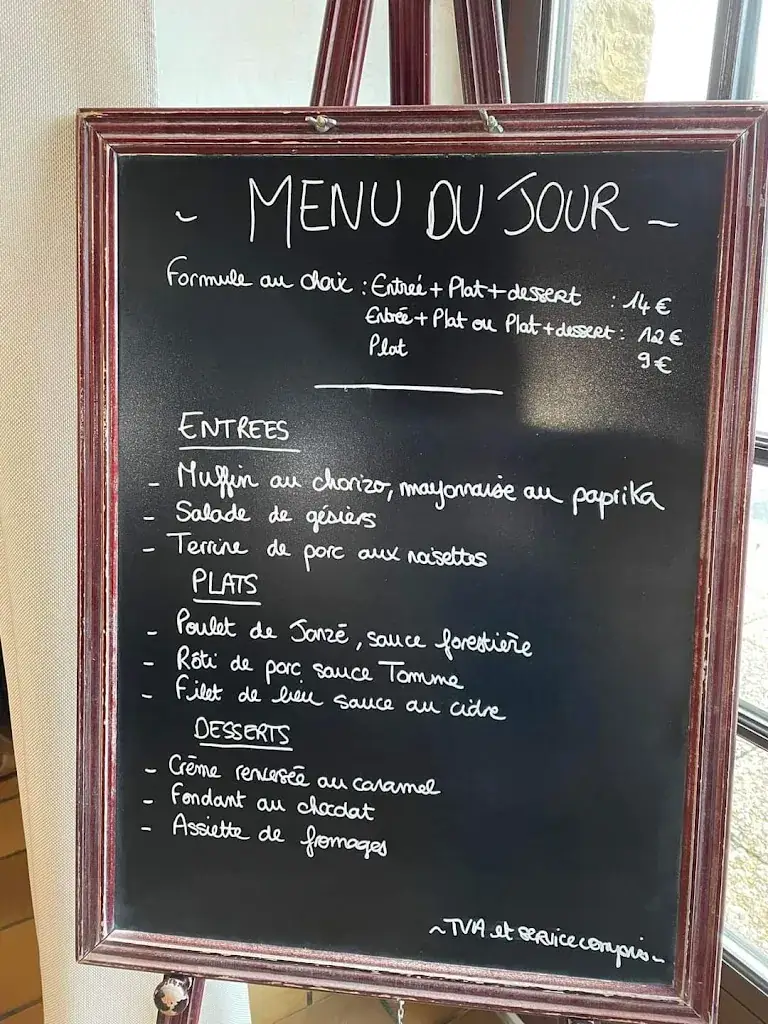 ~ MENU DU JOUR ~
Formule au choix : Entrée + Plat + dessert : 14 €
Entrée + Plat ou Plat + dessert : 12 €
Plat 9 €
ENTREES
- Muffin au chorizo, mayonnaise au paprika
- Salade de gésiers
- Terrine de porc aux noisettes
PLATS
- Poulet de Janzé, sauce forestière
- Rôti de porc sauce Tomme
- Filet de lieu sauce au cidre
DESSERTS
- Crème renversée au caramel
- Fondant au chocolat
- Assiette de fromages
~ TVA et service compris ~